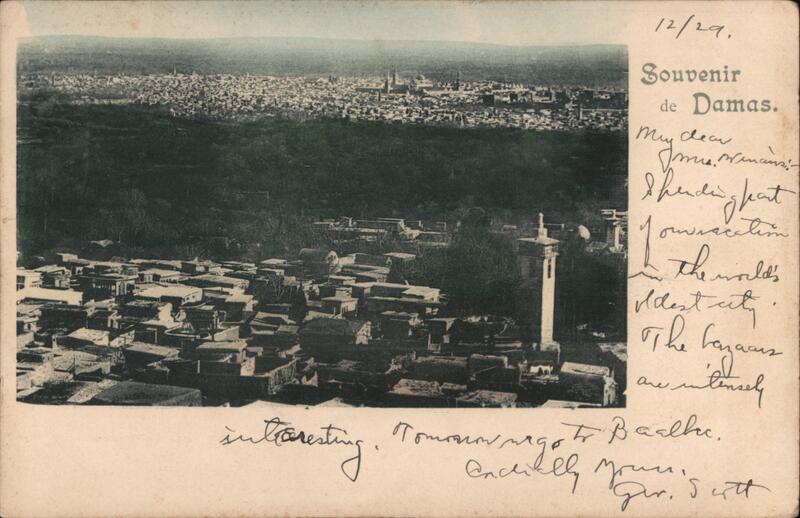 12/29.
Souvenir
de Damas.
My dear
Mrs. Winans:-
Spending part
of our vacation
in the world's
oldest city.
The bazaars
are intensely
interesting. Tomorrow we go to Baalbec.
Cordially Yours,
Geo. Scott